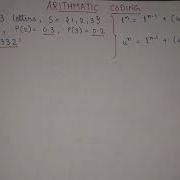 ARITHMATIC CODING
3 letters, S = {1, 2, 3}
P(2) = 0.3, P(3) = 0.2
332'
lⁿ = lⁿ⁻¹ + (u
uⁿ = lⁿ⁻¹ + (